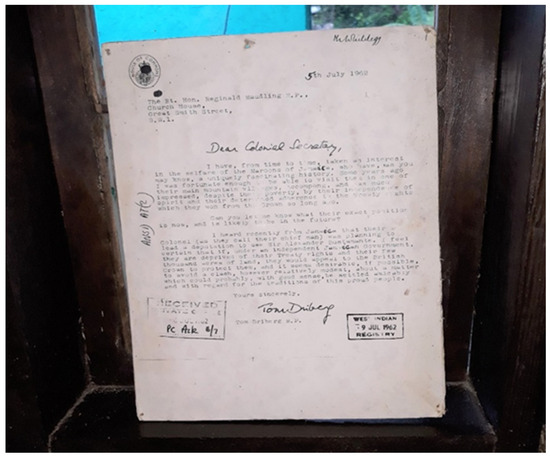 5th July 1962
The Rt. Hon. Reginald Maudling M.P.,
Church House,
Great Smith Street,
S.W.1.
Dear Colonial Secretary,
I have, from time to time, taken an interest
in the welfare of the Maroons of Jamaica, who have, as you
may know, a uniquely fascinating history. Some years ago
I was fortunate enough to be able to visit them in one of
their main mountain villages, Accompong, and was much
impressed, despite the poverty, by their independence of
spirit and their determined adherence to the treaty rights
which they won from the Crown so long ago.
Can you let me know what their exact position
is now, and is likely to be in the future?
I heard recently from Jamaica that their
Colonel (as they call their chief man) was planning to
lead a deputation to see Sir Alexander Bustamante. I feel
certain that if, under an independent Jamaican Government,
they are deprived of their Treaty rights and their few
thousand acres of land, they would appeal to the British
Crown to protect them, and it seems desirable, if possible,
to avoid a clash, however relatively modest, about a matter
which could probably, with good sense, be settled amicably
and with regard for the traditions of this proud people.
Yours sincerely,
Tom Driberg
Tom Driberg M.P.
RECEIVED
WEST INDIAN
9 JUL 1962
REGISTRY